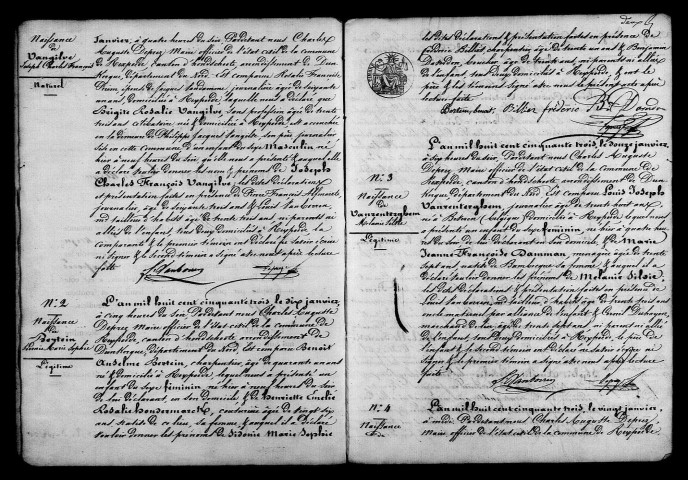 Naissance
de
Vangilve
Joseph Charles François
Naturel
janvier, à quatre heures du soir, Pardevant nous Charles
Auguste Deprey Maire officier de l'état civil de la commune
de Rexpoëde, canton d'hondschoote, arrondissement de Dun-
kerque, département du Nord, Est comparue Rosalie Françoise
épouse de Jacques
ans, domiciliée à Rexpoëde, laquelle nous a déclaré que
Brigite Rosalie Vangilve sans profession âgée de trente
trois ans célibataire, née & domiciliée à Rexpoëde, est accouchée
en la demeure de Philippe Jacques Vangilve son père journalier
sise en cette commune d'un enfant du sexe Masculin né
hier à neuf heures du soir qu'elle nous a présenté & auquel elle
a déclaré vouloir donner les nom & prénoms de Joseph
Charles François Vangilve, les dites déclaration
et présentation faites en présence de
journalier, âgé de
tailleur d'habits âgé de trente trois ans, ni parents ni
alliés de l'enfant, tous deux domiciliés à Rexpoëde, la
comparante & le premier témoin ont déclaré ne savoir écrire
ni signer & le second témoin a signé avec nous après lecture
faite
N° 2
Naissance
de
Bertein
Sidonie Marie Sophie
Légitime
L'an mil huit cent cinquante trois, le dix janvier,
à cinq heures du soir, Pardevant nous Charles Auguste
Deprey Maire officier de l'état civil de la commune de
Rexpoëde, canton d'hondschoote arrondissement de
Dunkerque, département du Nord, Est comparu Benoit
Anselme Bertein, charpentier, âgé de quarante ans
né & domicilié à Rexpoëde, lequel nous a présenté un
enfant du sexe féminin né hier à neuf heures du soir
de lui déclarant, en son domicile, & de Henriette Emélie
Rosalie Hondermarck, couturière âgée de vingt sept
ans native de ce lieu, sa femme & auquel il a déclaré
vouloir donner les prénoms de Sidonie Marie Sophie
les dites déclaration & présentation faites en présence de
Fréderic Billiet charpentier âgé de trente un ans & Benjamin
Dourdon, âgé de trente ans, ni parents ni alliés
de l'enfant, tous deux domiciliés à Rexpoëde, & ont le
père & les témoins signé avec nous le présent acte après
lecture faite
Bertein, benoit, Billiet fréderic B. Dourdon
N° 3
Naissance
de
Vanzonterghem
Melanie Silvie
Légitime
L'an mil huit cent cinquante trois, le douze janvier,
à sept heures du soir, Pardevant nous Charles Auguste
Deprey Maire officier de l'état civil de la commune de
Rexpoëde, canton d'hondschoote, arrondissement de Dun-
kerque, département du Nord, Est comparu Louis Joseph
Vanzonterghem, journalier, âgé de trente huit ans
né à (Belgique) domicilié à Rexpoëde, lequel nous
a présenté un enfant du sexe féminin, né hier à quatre heures
du soir de lui déclarant en son domicile, & de Marie
Jeanne Françoise Damman, ménagère âgée de trente
sept ans, native de Bambecque sa femme, & auquel il a
déclaré vouloir donner les prénoms de Melanie Silvie,
les dites déclaration & présentation faites en présence de
tailleur d'habits, âgé de trente trois ans
oncle maternel par alliance de l'enfant, &
marchand de âgé de trente sept ans, ni parent ni allié
de l'enfant, tous deux domiciliés à Rexpoëde, le père de
l'enfant & le second témoin ont déclaré ne savoir écrire ni
signer & le premier témoin a signé avec nous après lecture
faite
N° 4
Naissance
de
L'an mil huit cent cinquante trois, le vingt janvier,
à midi Pardevant nous Charles Auguste Deprey
Maire officier de l'état civil de la commune de Rexpoëde